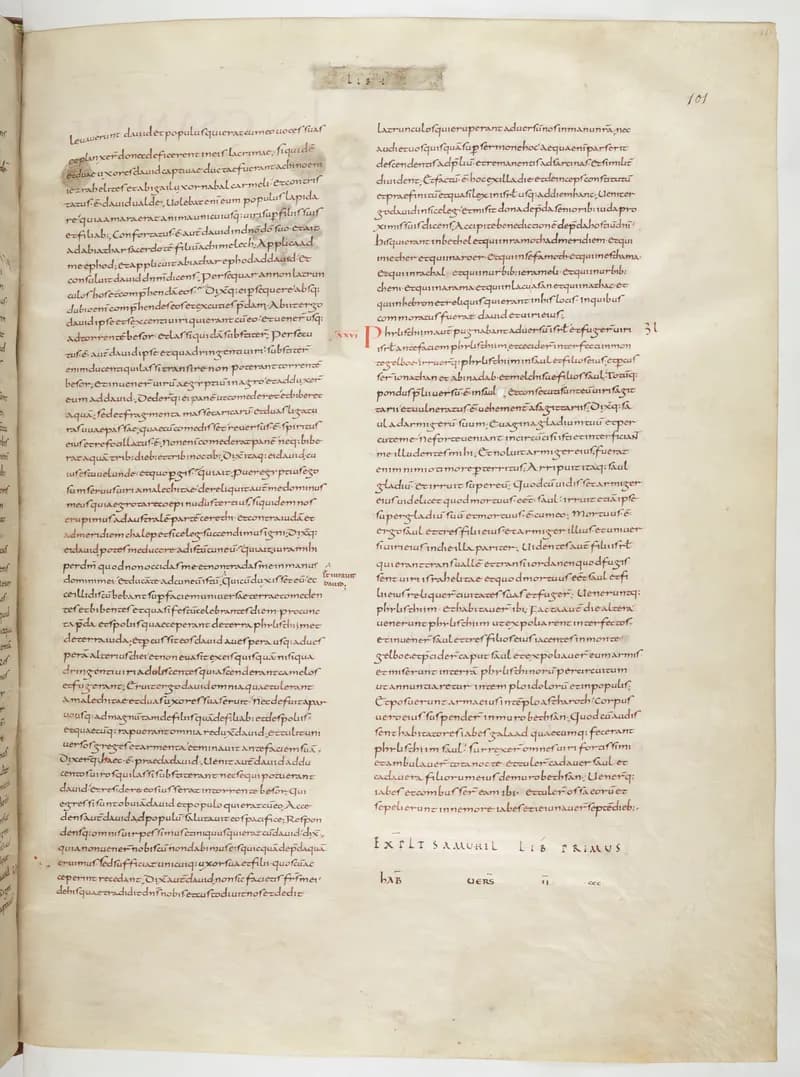 LIB I
101
Levaverunt david et populus qui erat cum eo voces suas
et planxer donec deficerent in eis lacrimae; siquidē
et duae uxores david captivae ductae fuerant achinoem
iezrahelites et abigail uxor nabal carmeli; et contris
tatus ē david valde; Volebat enī eum populus lapida
re quia amara erat anima uniuscuiusq; viri sup filiis suis
et filiab; Confortatus ē aut david in dnō dō suo et ait
ad abiathar sacerdotē filiū achimelech; Applica ad
me ephod; et applicuit abiathar ephod ad david et
consuluit david dnm dicens; Persequar an non latrun
culos hos et comphendā eos; Dixitq; ei persequere absq;
dubio enī comphendes eos et excuties pdam; Abiit ergo
david ipse et sexcenti viri qui erant cū eo et vener usq;
ad torrentē besor et lassi quidā substiter; Persecu
tus ē aut david ipse et quadringenti viri; substiter
enim ducenti qui lassi transire non poterant torrentē
besor; et invener virū aegyptiū in agro et adduxer
eum ad david; Dederq; ei panē ut comederet et biberet
aquā; sed et fragmenta massae caricarū et duas ligatu
ras uvae passae; quae cū comedisset reversus ē sps
eius et refocillatus ē; Non enī comederat panē neq; bibe
rat aquā trib; dieb; et trib; noctib; Dixit itaq; ei david; cu
ius es tu vel unde et quo pgis; qui ait; Puer aegyptius ego
sum servus viri amalechitae dereliquit aut me dominus
meus quia aegrotare coepi nudiustertius; siquidem nos
erupimus ad australē partē cerethi et contra iudā et
ad meridiem chaleb et siceleg succendimus igni; Dixitq;
ei david potes me ducere ad istū cuneū; qui ait iura mihi
perdm quod non occidas me et non tradas me in manus
domini mei et ducā te ad cuneū istū; Qui cū duxisset eū ec
et iuravit
david;
ce illi discumbebant sup faciem universae terrae comeden
tes et bibentes et quasi festū celebrantes diem pro cunc
ta pda et spoliis quae ceperant de terra phylisthim et
de terra iuda; et pcussit eos david a vespera usq; ad ves
perā alterius diei et non evasit ex eis quisquā nisi qua
dringenti viri adolescentes qui ascenderant camelos
et fugerant; Eruit ergo david omnia quae tulerant
amalechitae et duas uxores suas eruit; Nec defuit a par
vo usq; ad magnū tam de filiis quā de filiab; et de spoliis
et quaecūq; rapuerant omnia reduxit david; et tulit uni
versos greges et armenta et minavit ante faciem suā;
Dixerq; haec ē praeda david; Venit aut david ad du
centos viros qui lassi substiterant nec sequi potuerant
david et residere eos iusserat in torrente besor; Qui
egressi sunt obviā david et populo qui erat cū eo; Acce
dens aut david ad populū salutavit eos pacifice; Respon
densq; omnis vir pessimus et iniquus qui erat cū david dix;
quia non vener nobiscū non dabimus eis quicquā de pda quā
eruimus sed sufficiat unicuiq; uxor sua et filii quos cū ac
ceperint recedant; Dixit aut david; non sic facietis frs mei
de his quae tradidit dns nobis et custodivit nos et dedit
latrunculos qui eruperant adversū nos in manu nrā; nec
audiet vos quisquā sup sermone hoc; Aequa enī pars erit
descendentis ad pliū et remanentis ad sarcinas et similit
divident; Et factū ē hoc ex illa die et deinceps constitutū
et praefinitū et quasi lex in isrl usq; ad diem hanc; Venit er
go david in siceleg et misit dona de pda seniorib; iuda pro
ximis suis dicens; Accipite benedictionē de pda hostiū dni;
his qui erant in bethel et qui in ramoth ad meridiem et qui
in iether et qui in aroer et qui in sefamoth et qui in esthama;
et qui in rachal; et qui in urbib; ierameli et qui in urbib;
cheni et qui in arama et qui in lacu asan et qui in athac et
qui in hebron et reliquis qui erant in his locis in quibus
commoratus fuerat david et viri eius;
XXVI Phylisthim aut pugnabant adversū isrl et fuger viri
31
isrl ante faciem phylisthim et cecider interfecti in mon
te gelboe; irruerq; phylisthim in saul et filios eius et pcus
ser ionathan et abinadab et melchisue filios saul; Totūq;
pondus plii versū ē in saul et consecuti sunt eū viri sagit
tarii et vulneratus ē vehement a sagittariis; Dixitq; sa
ul ad armigerū suum; Evagina gladium tuū et per
cute me ne forte veniant incircūcisi isti et interficiant
me illudentes mihi; Et noluit armiger eius; fuerat
enim nimio timore pterritus; Arripuit itaq; saul
gladiū et irruit super eū; Quod cū vidisset armiger
eius videlicet quod mortuus eet saul; irruit etiā ipse
super gladiū suū et mortuus ē cum eo; Mortuus ē
ergo saul et tres filii eius et armiger illius et univer
si viri eius in die illa pariter; Videntes aut filii isrl
qui erant trans vallē et trans iordanen quod fugis
sent viri israhelitae et quod mortuus eet saul et fi
lii eius reliquer civitates suas et fuger; Venerunt q;
phylisthim et habitaver ibi; Facta aut die altera
venerunt phylisthim ut expoliarent interfectos;
et invener saul et tres filios eius iacentes in monte
gelboe et pcider caput saul et expoliaver eum armis
et miser in terrā phylisthinorū per circuitum
ut annuntiaretur in templo idolorū et in populis;
Et posuer arma eius in templo astharoth; Corpus
vero eius suspender in muro bethsan; Quod cū audis
sent habitatores iabes galaad quaecumq; fecerant
phylisthim saul; surrexer omnes viri fortissimi
et ambulaver tota nocte et tuler cadaver saul et
cadavera filiorum eius de muro bethsan; Venerq;
iabes et combusser eam ibi et tuler ossa eorū et
sepelierunt in nemore iabes et ieiunaver septē dieb;
EXPLT SAMUHIL LIB PRIMUS
HAB VERS II CCC